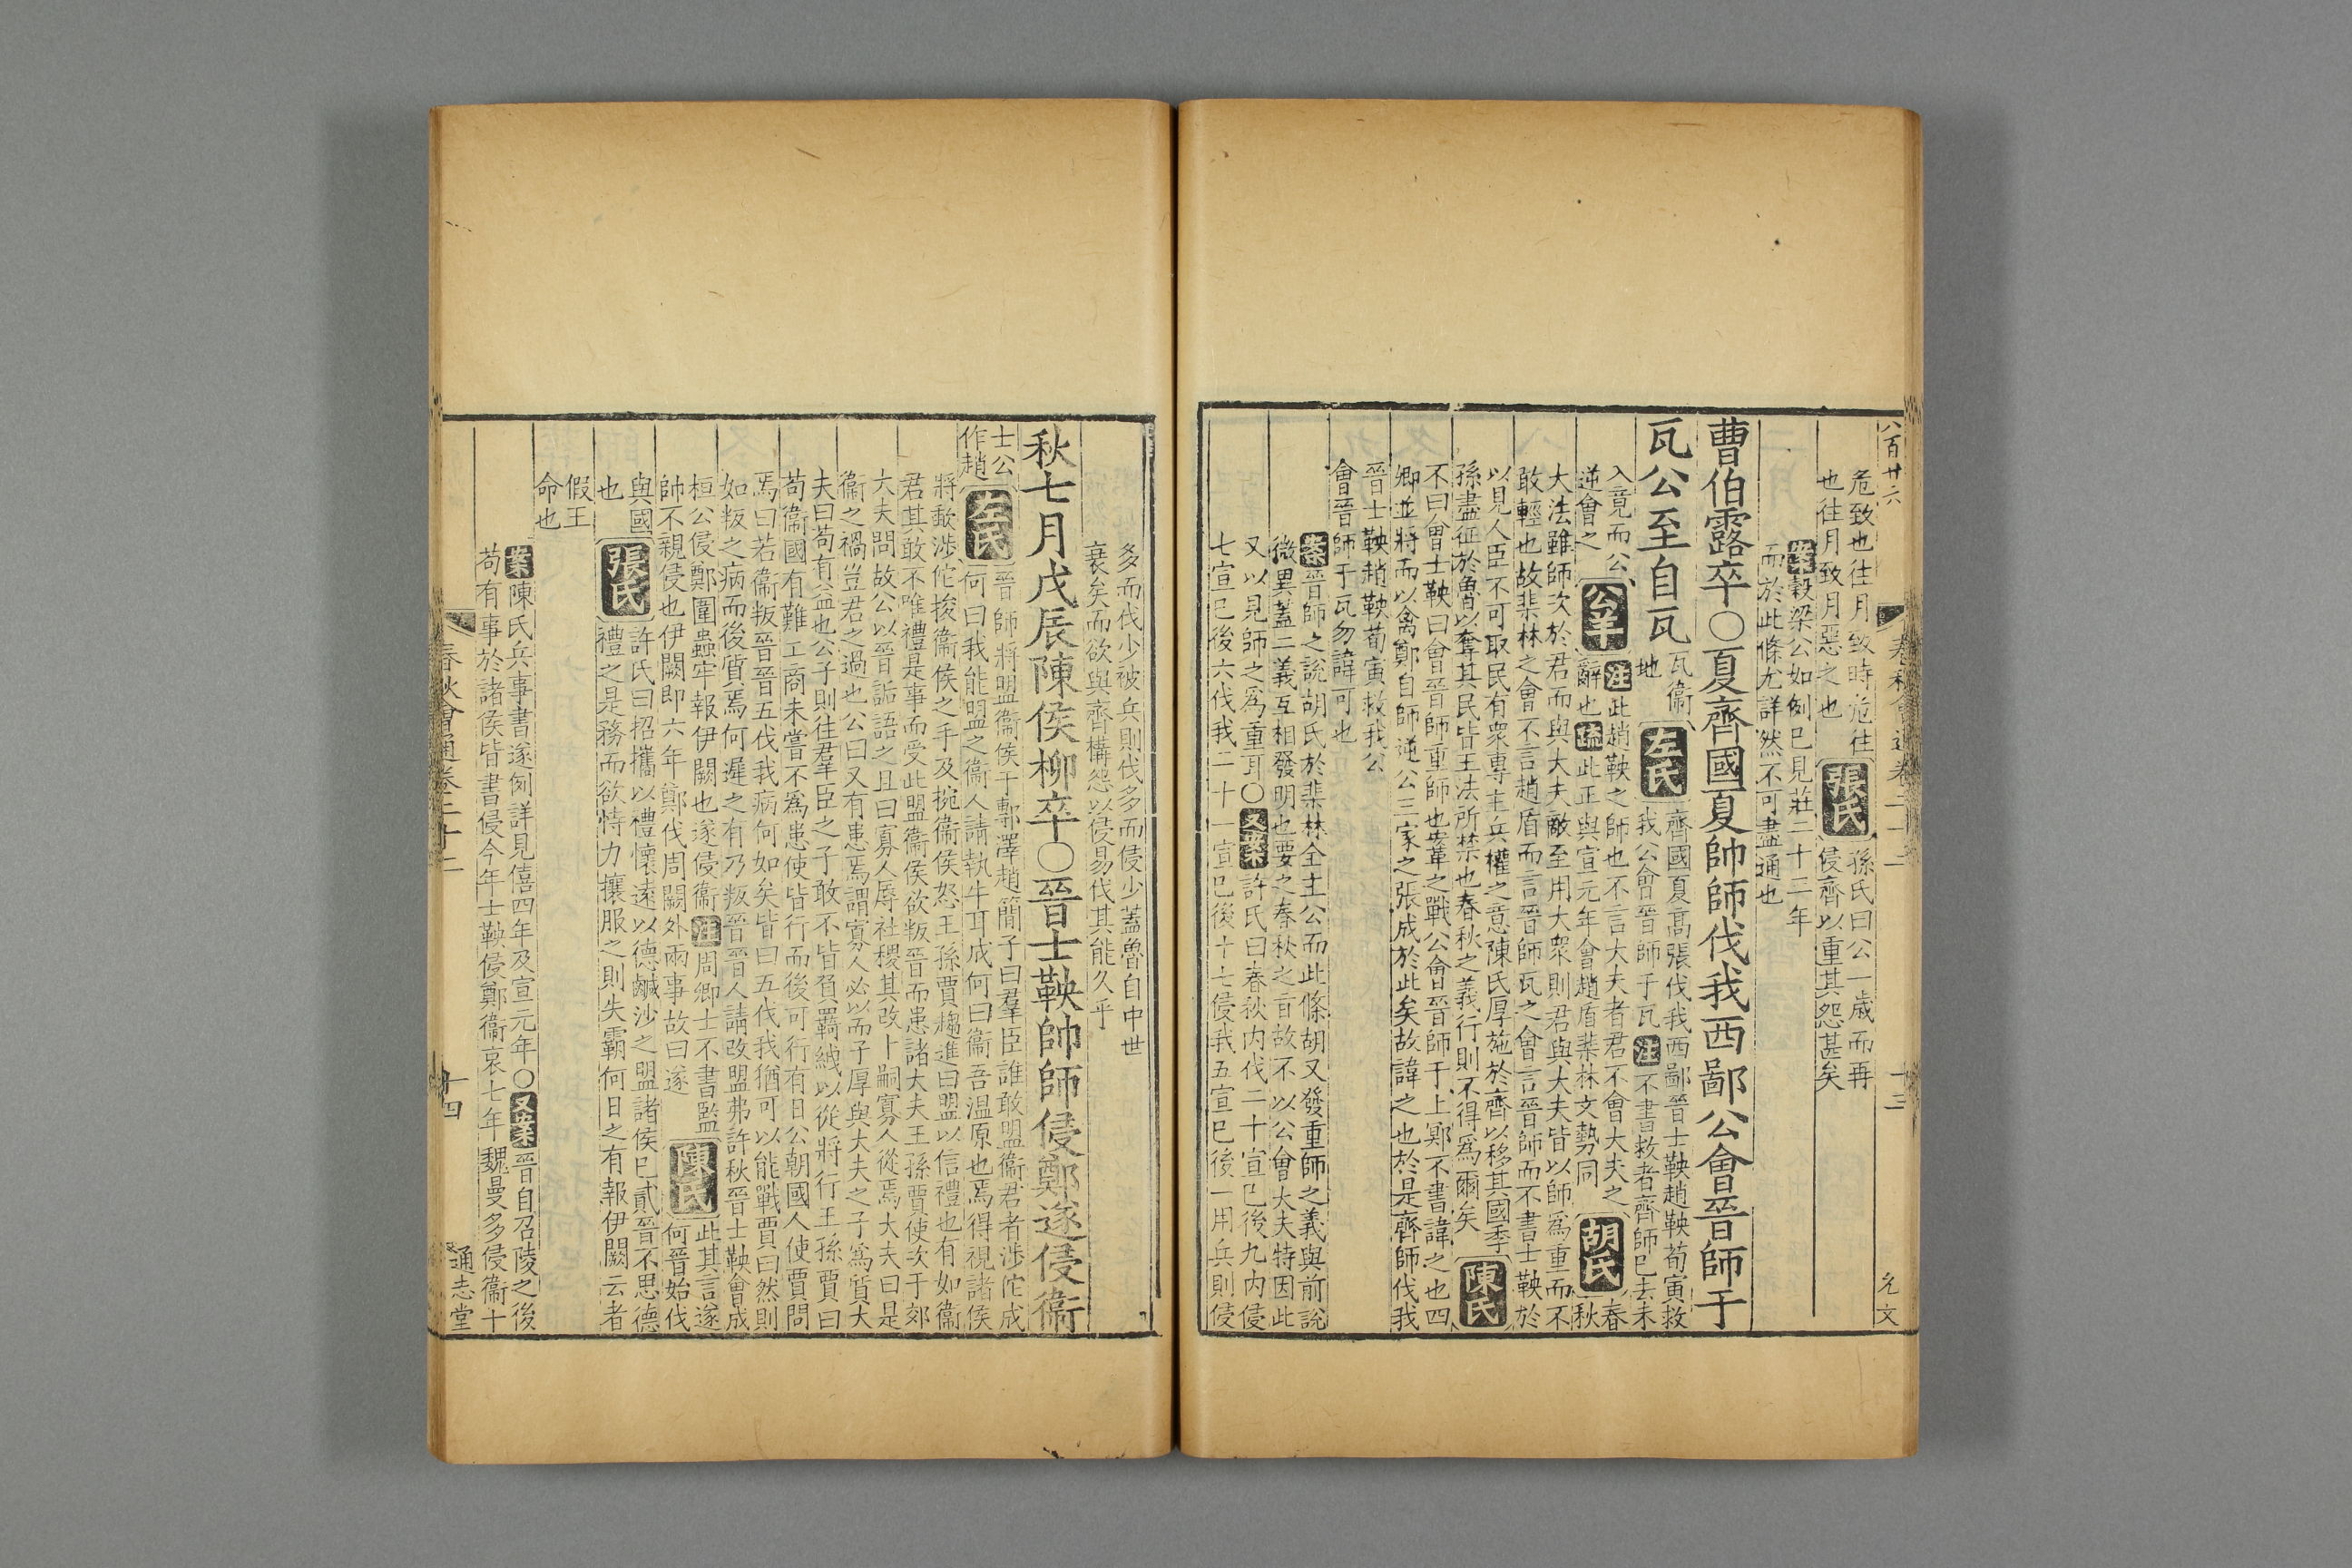 八百廿六
春秋會通卷二十二
十三
允文
危致也往月致時危往
也往月致月惡之也
張氏
孫氏曰公一歲而再
侵齊以重其怨甚矣
案穀梁公如例已見莊二十三年
而於此條尤詳然不可盡通也
曹伯露卒○夏齊國夏帥師伐我西鄙公會晉師于
瓦公至自瓦
瓦衞
地
左氏
齊國夏高張伐我西鄙晉士鞅趙鞅荀寅救
我公會晉師于瓦注不書救者齊師已去未
入竟而公
逆會之
公羊
注此趙鞅之師也不言大夫者君不會大夫之
辭也疏此正與宣元年會趙盾棐林文勢同
胡氏
春
秋
大法雖師次於君而與大夫敵至用大衆則君與大夫皆以師爲重而不
敢輕也故棐林之會不言趙盾而言晉師瓦之會言晉師而不書士鞅於
以見人臣不可取民有衆專主兵權之意陳氏厚施於齊以移其國季
孫盡征於魯以奪其民皆王法所禁也春秋之義行則不得爲爾矣
陳氏
不曰會士鞅曰會晉師重師也鞌之戰公會晉師于上鄍不書諱之也四
卿並將而以禽鄭自師逆公三家之張成於此矣故諱之也於是齊師伐我
晉士鞅趙鞅荀寅救我公
會晉師于瓦勿諱可也
案晉師之說胡氏於棐林全主公而此條胡又發重師之義與前說
微異蓋二義互相發明也要之春秋之旨故不以公會大夫特因此
又以見師之爲重耳○又案許氏曰春秋内伐二十宣已後九内侵
七宣已後六伐我二十一宣已後十七侵我五宣已後一用兵則侵
多而伐少被兵則伐多而侵少蓋魯自中世
衰矣而欲與齊構怨以侵易伐其能久乎
秋七月戊辰陳侯柳卒○晉士鞅帥師侵鄭遂侵衞
士公
作趙
左氏
晉師將盟衞侯于鄟澤趙簡子曰羣臣誰敢盟衞君者涉佗成
何曰我能盟之衞人請執牛耳成何曰衞吾溫原也焉得視諸侯
將歃涉佗捘衞侯之手及捥衞侯怒王孫賈趨進曰盟以信禮也有如衞
君其敢不唯禮是事而受此盟衞侯欲叛晉而患諸大夫王孫賈使次于郊
大夫問故公以晉詬語之且曰寡人辱社稷其改卜嗣寡人從焉大夫曰是
衞之禍豈君之過也公曰又有患焉謂寡人必以而子厚與大夫之子爲質大
夫曰苟有益也公子則往羣臣之子敢不皆負羈絏以從將行王孫賈曰
苟衞國有難工商未嘗不爲患使皆行而後可行有日公朝國人使賈問
焉曰若衞叛晉晉五伐我病何如矣皆曰五伐我猶可以能戰賈曰然則
如叛之病而後質焉何遲之有乃叛晉晉人請改盟弗許秋晉士鞅會成
桓公侵鄭圍蟲牢報伊闕也遂侵衞注周卿士不書監
帥不親侵也伊闕即六年鄭伐周闕外兩事故曰遂
陳氏
此其言遂
何晉始伐
與國
也
張氏
許氏曰招攜以禮懷遠以德鹹沙之盟諸侯已貳晉不思德
禮之是務而欲恃力攘服之則失霸何日之有報伊闕云者
假王
命也
案陳氏兵事書遂例詳見僖四年及宣元年○又案晉自召陵之後
苟有事於諸侯皆書侵今年士鞅侵鄭衞哀七年魏曼多侵衞十
春秋會通卷二十二
十四
通志堂